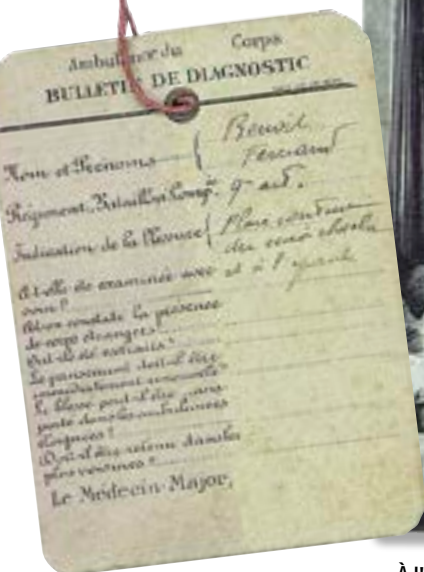 Ambulance du Corps
BULLETIN DE DIAGNOSTIC
Nom et Prénoms { Benoit
Fernand
Régiment, Bataillon, Comp.ie 9e art.
Indication de la Blessure { Plaie contuse
du cuir chevelu
et à l'épaule
A-t-elle été examinée avec
soin ?
A-t-on constaté la présence
de corps étrangers ?
Ont-ils été extraits ?
Le pansement doit-il être
immédiatement renouvelé ?
Le blessé peut-il être trans-
porté dans les ambulances
éloignées ?
Doit-il être retenu dans les
plus voisines ?
Le Médecin-Major,